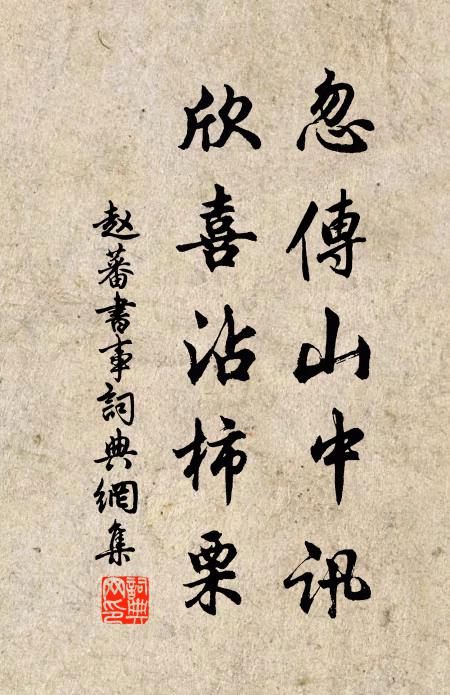 忽傳山中訊
欣喜沾柿栗
赵蕃書事詞典網集
詞典网印